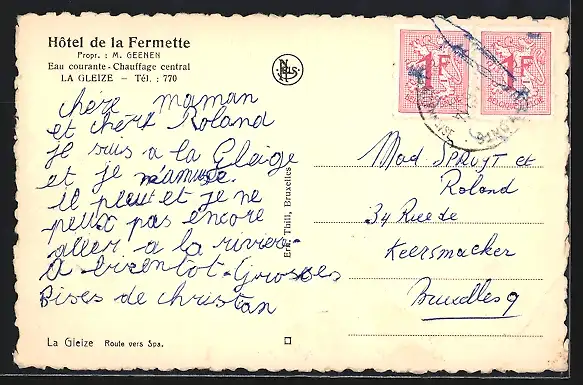 Hôtel de la Fermette
Propr. : M. GEENEN
Eau courante - Chauffage central
LA GLEIZE — Tél. : 770
chère maman
et chert Roland
je suis a la Gleige
et je m'amuse.
il pleut et je ne
peux pas encore
aller a la rivière
A bientot. Grosses
Bises de christan
La Gleize Route vers Spa.
NELS
Ern. Thill, Bruxelles
1F
1F
Mad. SPRUYT et
Roland
34 Rue de
Keersmacker
Bruxelles 9